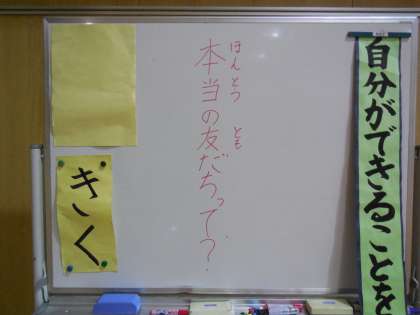 自分ができることを
ほんとう とも
本当の友だちって?
きく